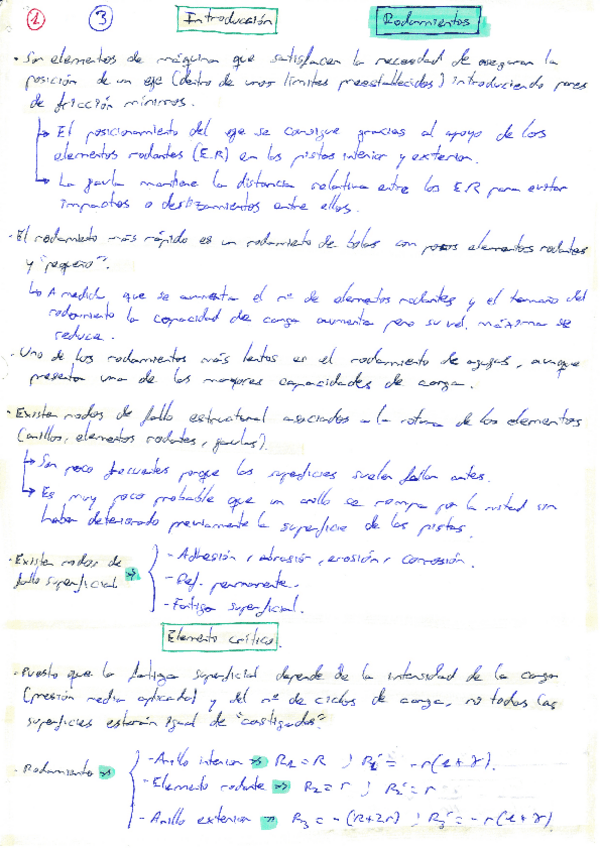 1 3 Introducción Rodamientos
· Son elementos de máquina que satisfacen la necesidad de asegurar la
posición de un eje (dentro de unos límites preestablecidos) introduciendo pares
de fricción mínimos.
↳ El posicionamiento del eje se consigue gracias al apoyo de los
elementos rodantes (E.R) en las pistas interior y exterior.
↳ La jaula mantiene la distancia relativa entre los E.R para evitar
impactos o deslizamientos entre ellos.
· El rodamiento más rápido es un rodamiento de bolas con pocos elementos rodantes
y "pequeño".
↳ A medida que se aumenta el nº de elementos rodantes y el tamaño del
rodamiento la capacidad de carga aumenta pero su vel. máxima se
reduce.
· Uno de los rodamientos más lentos es el rodamiento de agujas, aunque
presenta una de las mayores capacidades de carga.
· Existen modos de fallo estructural asociados a la rotura de los elementos
(anillos, elementos rodantes, jaulas).
↳ Son poco frecuentes porque las superficies suelen fallar antes.
↳ Es muy poco probable que un anillo se rompa por la mitad sin
haber deteriorado previamente la superficie de las pistas.
· Existen modos de fallo superficial ⇒
- Adhesión, abrasión, erosión, corrosión.
- Def. permanente.
- Fatiga superficial.
Elemento crítico.
· Puesto que la fatiga superficial depende de la intensidad de la carga
(presión media aplicada) y del nº de ciclos de carga, no todas las
superficies estarán igual de "castigadas".
· Rodamiento ⇒
- Anillo interior ⇒ R₁ = R ; R₁' = -r(1+γ).
- Elemento rodante ⇒ R₂ = r ; R₂' = r
- Anillo exterior ⇒ R₃ = -(R+2r) ; R₃' = -r(1+γ)